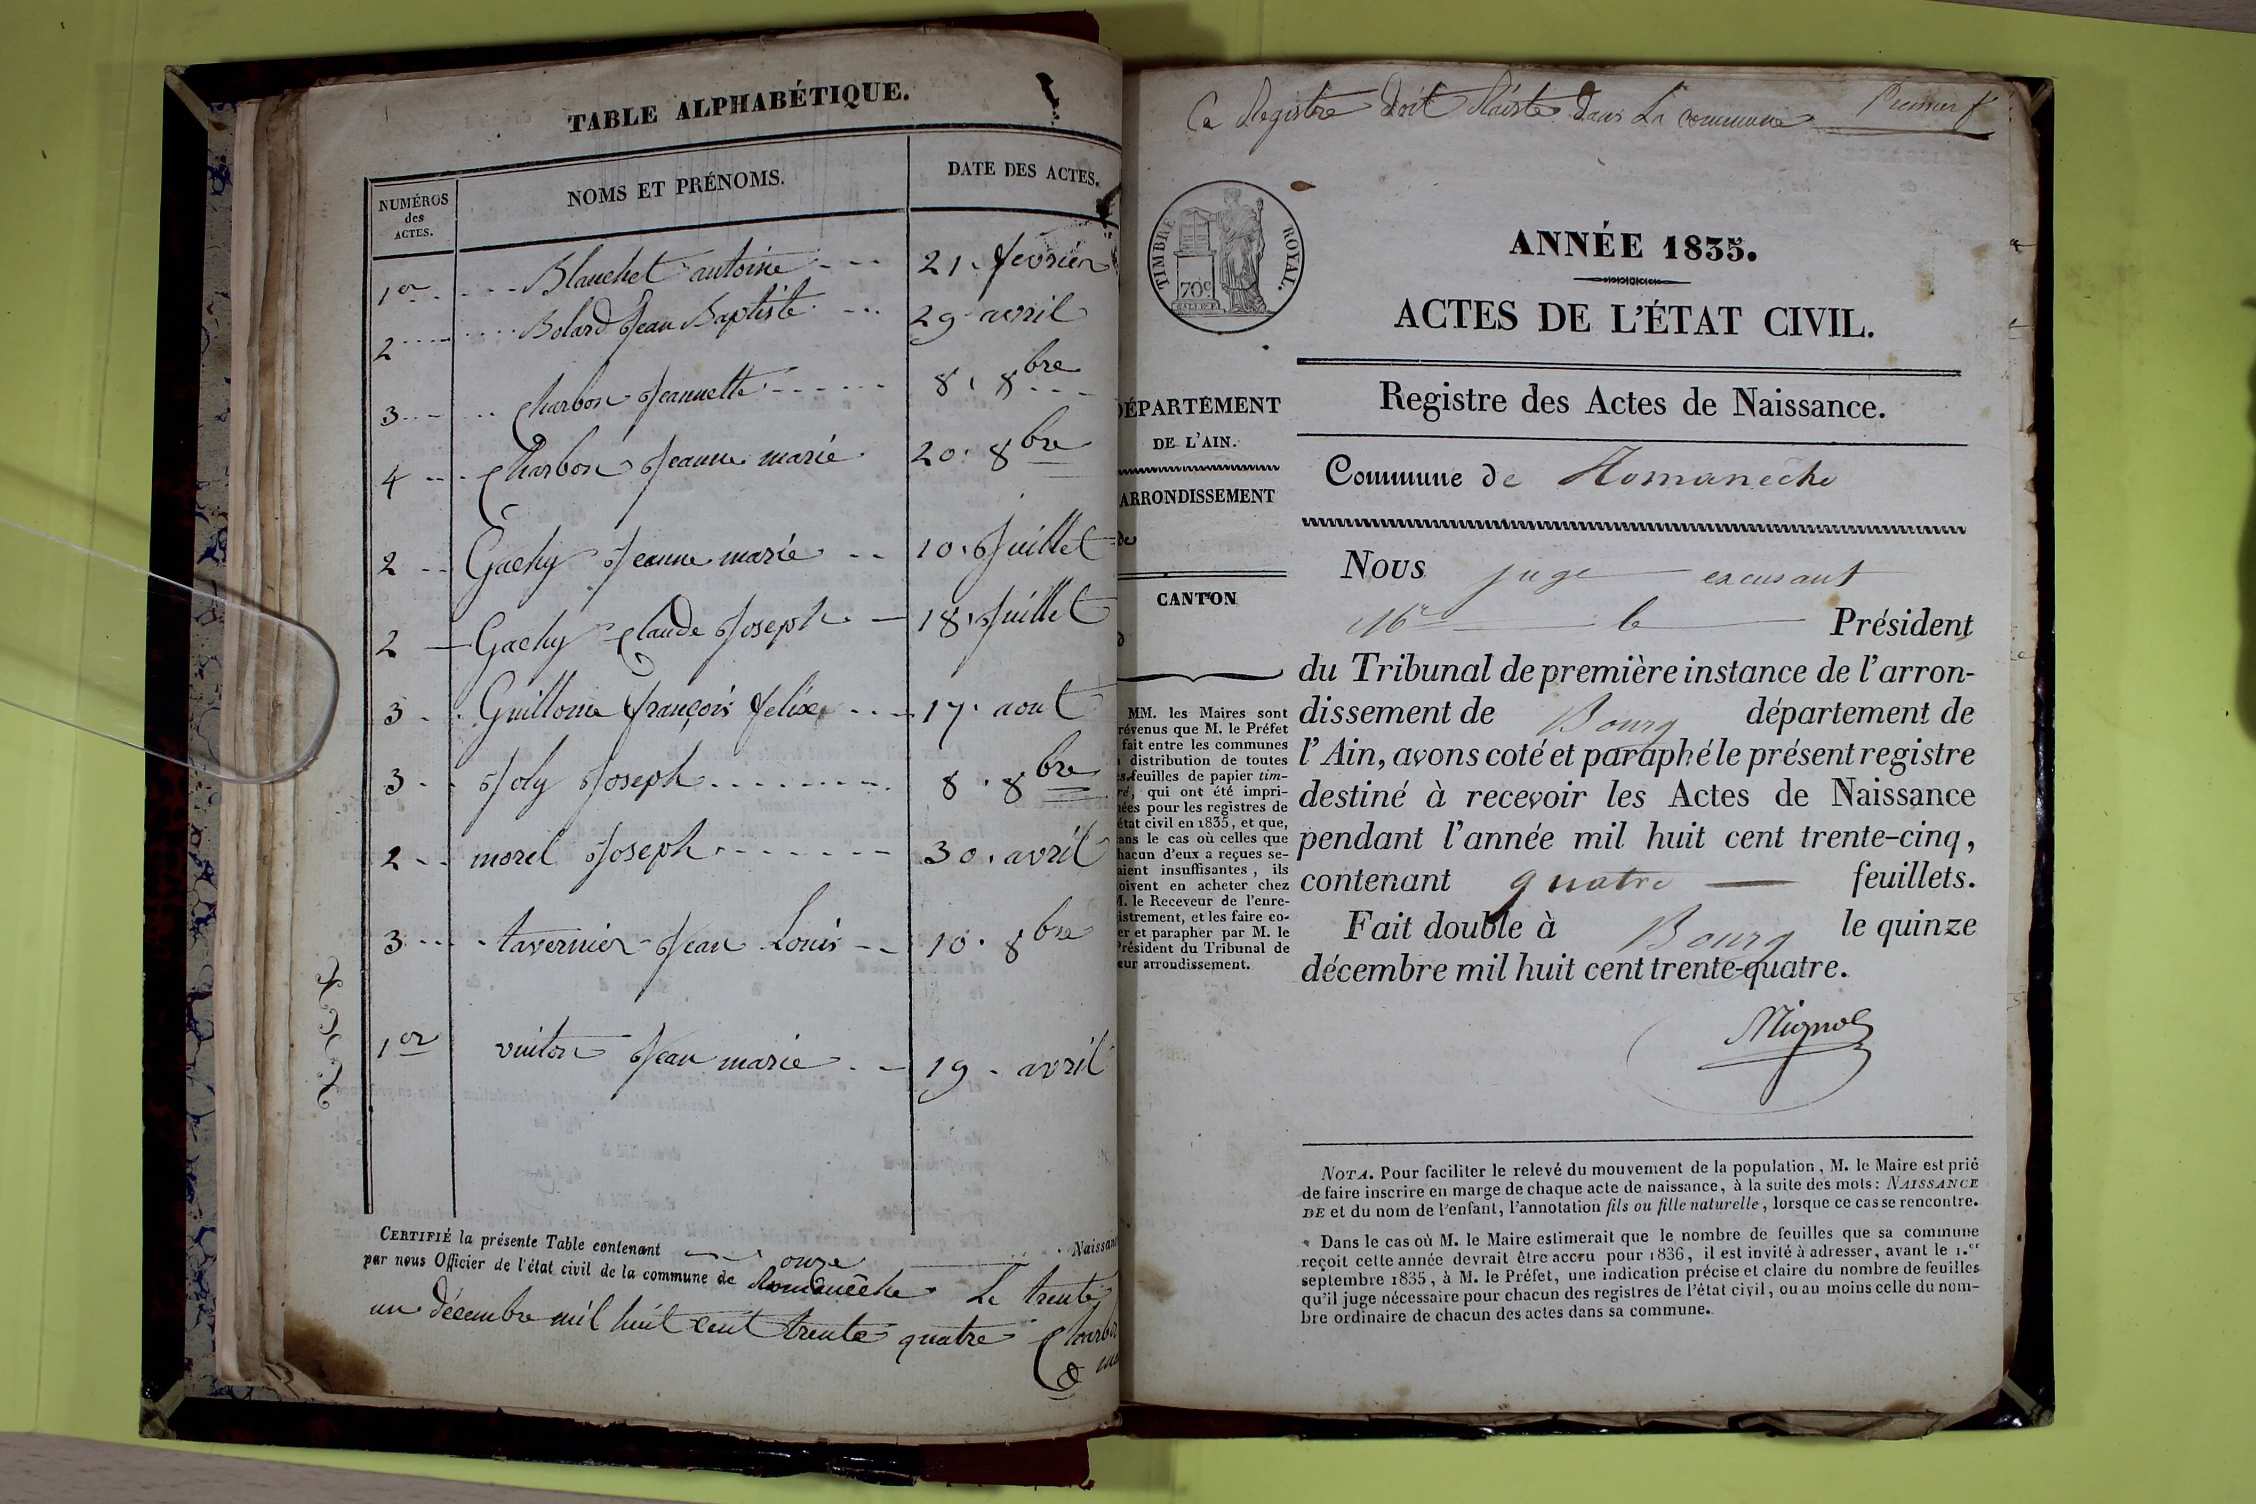 TABLE ALPHABÉTIQUE.
NUMÉROS
des
ACTES.
NOMS ET PRÉNOMS.
DATE DES ACTES.
1er Blanchet antoine 21. fevrier
2 Bolard Jean Baptiste 29 avril
3 Charbon Jeannette 8. 8bre
4 Charbon Jeanne marie 20. 8bre
2 Gachy Jeanne marie 10. Juillet
2 Gachy Claude Joseph 18. Juillet
3 Guillome françois felix 17. aout
3 Joly Joseph 8. 8bre
2 morel Joseph 30. avril
3 tavernier Jean Louis 10. 8bre
1er vuiton Jean marie 19. avril
CERTIFIÉ la présente Table contenant onze Naissan
par nous Officier de l'état civil de la commune de Romanêche Le trente
un décembre mil huit cent trente quatre
Ce Registre doit dans La commune Premier f
TIMBRE ROYAL.
70c
ANNÉE 1835.
ACTES DE L'ÉTAT CIVIL.
Registre des Actes de Naissance.
Commune de Romanêche
DÉPARTEMENT
DE L'AIN.
ARRONDISSEMENT
de
CANTON
MM. les Maires sont
révenus que M. le Préfet
fait entre les communes
distribution de toutes
es feuilles de papier tim-
ré, qui ont été impri-
ées pour les registres de
état civil en 1835, et que,
ans le cas où celles que
hacun d'eux a reçues se-
aient insuffisantes, ils
oivent en acheter chez
M. le Receveur de l'enre-
istrement, et les faire co-
er et parapher par M. le
Président du Tribunal de
eur arrondissement.
Nous juge excusant
Mr le Président
du Tribunal de première instance de l'arron-
dissement de Bourg département de
l'Ain, avons coté et paraphé le présent registre
destiné à recevoir les Actes de Naissance
pendant l'année mil huit cent trente-cinq,
contenant quatre feuillets.
Fait double à Bourg le quinze
décembre mil huit cent trente-quatre.
NOTA. Pour faciliter le relevé du mouvement de la population, M. le Maire est prié
de faire inscrire en marge de chaque acte de naissance, à la suite des mots: NAISSANCE
DE et du nom de l'enfant, l'annotation fils ou fille naturelle, lorsque ce cas se rencontre.
Dans le cas où M. le Maire estimerait que le nombre de feuilles que sa commune
reçoit cette année devrait être accru pour 1836, il est invité à adresser, avant le 1.er
septembre 1835, à M. le Préfet, une indication précise et claire du nombre de feuilles
qu'il juge nécessaire pour chacun des registres de l'état civil, ou au moins celle du nom-
bre ordinaire de chacun des actes dans sa commune.